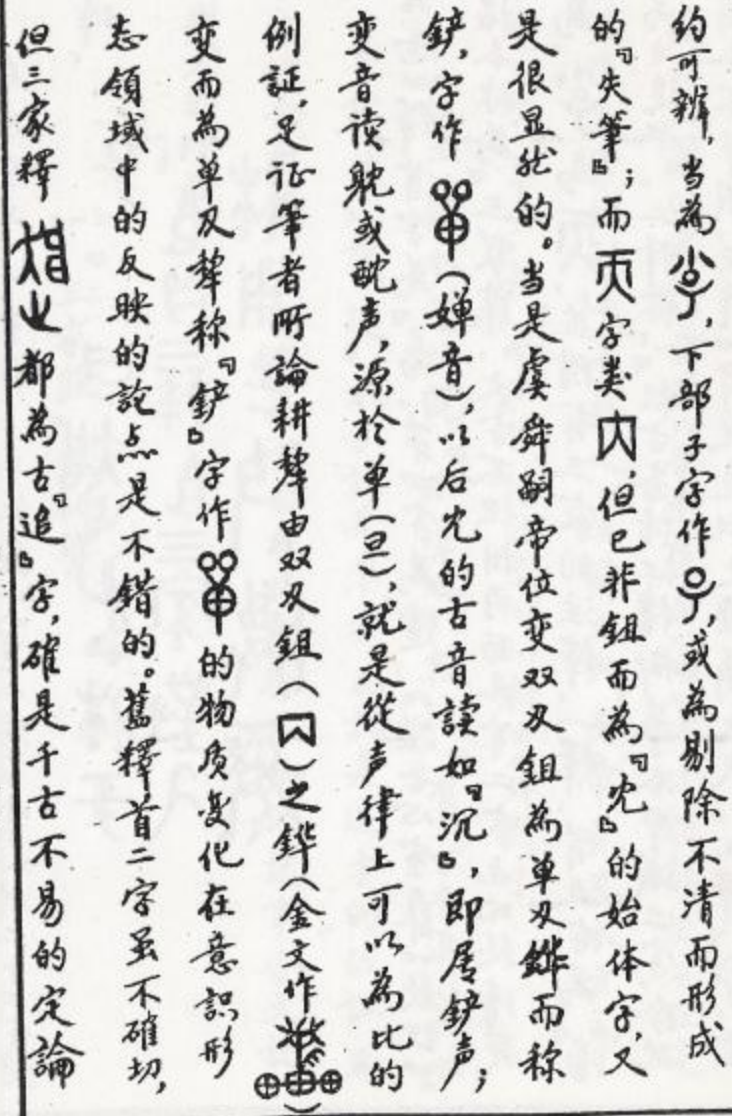 约可辨,当為,下部子字作,或為剔除不清而形成
的『失筆』;而字类,但已非鉏而為『冘』的始体字,又
是很显然的。当是虞舜嗣帝位变双刄鉏為单刄鏵而称
鏟,字作(婵音),以后冘的古音讀如『沉』,即屬鏟声;
变音读躭或酖声,源於单(旦),就是從声律上可以為比的
例証,足证筆者所論耕犂由双刄鉏()之鏵(金文作)
变而為单刄犂称『鏟』字作的物质变化在意識形
态領域中的反映的論点是不錯的。舊釋首二字虽不確切,
但三家釋都為古『追』字,確是千古不易的定論